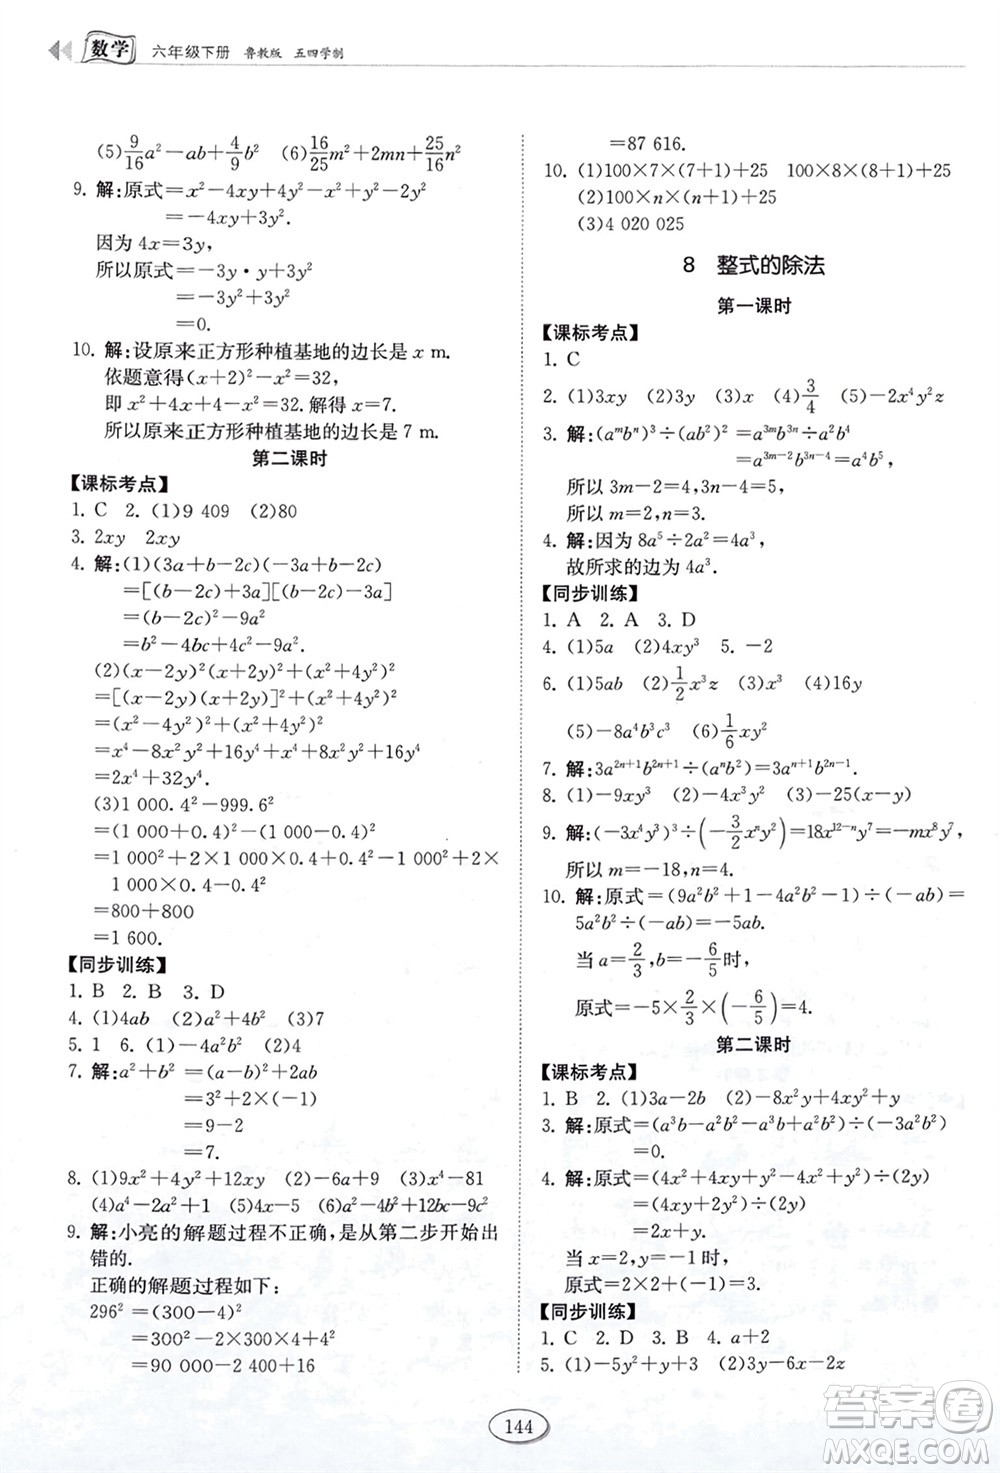 数学 六年级下册 鲁教版 五四学制
(5)9/16a²-ab+4/9b² (6)16/25m²+2mn+25/16n²
9. 解:原式=x²-4xy+4y²-x²+y²-2y²
=-4xy+3y².
因为 4x=3y,
所以原式=-3y·y+3y²
=-3y²+3y²
=0.
10. 解:设原来正方形种植基地的边长是 x m.
依题意得(x+2)²-x²=32,
即 x²+4x+4-x²=32.解得x=7.
所以原来正方形种植基地的边长是 7 m.
第二课时
【课标考点】
1. C 2. (1)9 409 (2)80
3. 2xy 2xy
4. 解:(1)(3a+b-2c)(-3a+b-2c)
=[(b-2c)+3a][(b-2c)-3a]
=(b-2c)²-9a²
=b²-4bc+4c²-9a².
(2)(x-2y)²(x+2y)²+(x²+4y²)²
=[(x-2y)(x+2y)]²+(x²+4y²)²
=(x²-4y²)²+(x²+4y²)²
=x⁴-8x²y²+16y⁴+x⁴+8x²y²+16y⁴
=2x⁴+32y⁴.
(3)1 000.4²-999.6²
=(1 000+0.4)²-(1 000-0.4)²
=1 000²+2×1 000×0.4+0.4²-1 000²+2×
1 000×0.4-0.4²
=800+800
=1 600.
【同步训练】
1. B 2. B 3. D
4. (1)4ab (2)a²+4b² (3)7
5. 1 6. (1)-4a²b² (2)4
7. 解:a²+b²=(a+b)²-2ab
=3²+2×(-1)
=9-2
=7.
8. (1)9x²+4y²+12xy (2)-6a+9 (3)4x²-81
(4)a⁴-2a²+1 (5)4x-5 (6)a²-4b²+12bc-9c²
9. 解:小亮的解题过程不正确,是从第二步开始出
错的.
正确的解题过程如下:
296²=(300-4)²
=300²-2×300×4+4²
=90 000-2 400+16
=87 616.
10. (1)100×7×(7+1)+25 100×8×(8+1)+25
(2)100×n×(n+1)+25
(3)4 020 025
8 整式的除法
第一课时
【课标考点】
1. C
2. (1)3xy (2)3y (3)3x (4)3/4 (5)-2x⁴y²z
3. 解:(aᵐbⁿ)³÷(ab²)²=a³ᵐb³ⁿ÷a²b⁴
=a³ᵐ⁻²b³ⁿ⁻⁴=a⁴b⁵,
所以 3m-2=4,3n-4=5,
所以 m=2,n=3.
4. 解:因为 8a⁵÷2a²=4a³,
故所求的边为 4a³.
【同步训练】
1. A 2. A 3. D
4. (1)5a (2)4xy³ 5. -2
6. (1)5ab (2)1/2x³z (3)x³ (4)16y
(5)-8a⁴b³c³ (6)1/6xy²
7. 解:3a²ⁿ⁺¹b²ⁿ⁺¹÷(aⁿb²)=3aⁿ⁺¹b²ⁿ⁻¹.
8. (1)-9xy³ (2)-4xy² (3)-25(x-y)
9. 解:(-3x⁴y³)³÷(-3/2xⁿy²)=18x¹²⁻ⁿy⁷=-mx⁸y⁷,
所以 m=-18,n=4.
10. 解:原式=(9a²b²+1-4a²b²-1)÷(-ab)=
5a²b²÷(-ab)=-5ab.
当 a=2/3,b=-6/5时,
原式=-5×2/3×(-6/5)=4.
第二课时
【课标考点】
1. B 2. (1)3a-2b (2)-8x²+4xy²+y
3. 解:原式=(a⁴b⁷-a²b⁶)÷(a²b⁶)-(a²b-1)
=0.
4. 解:原式=(4x²+4xy+y²-4x²+y²)÷(2y)
=(4xy+2y²)÷(2y)
=2x+y.
当 x=2,y=-1时,
原式=2×2+(-1)=3.
【同步训练】
1. C 2. D 3. B 4. a+2
5. (1)-5y²+y (2)3y-6x-2z
144
答案圈
MXQE.COM